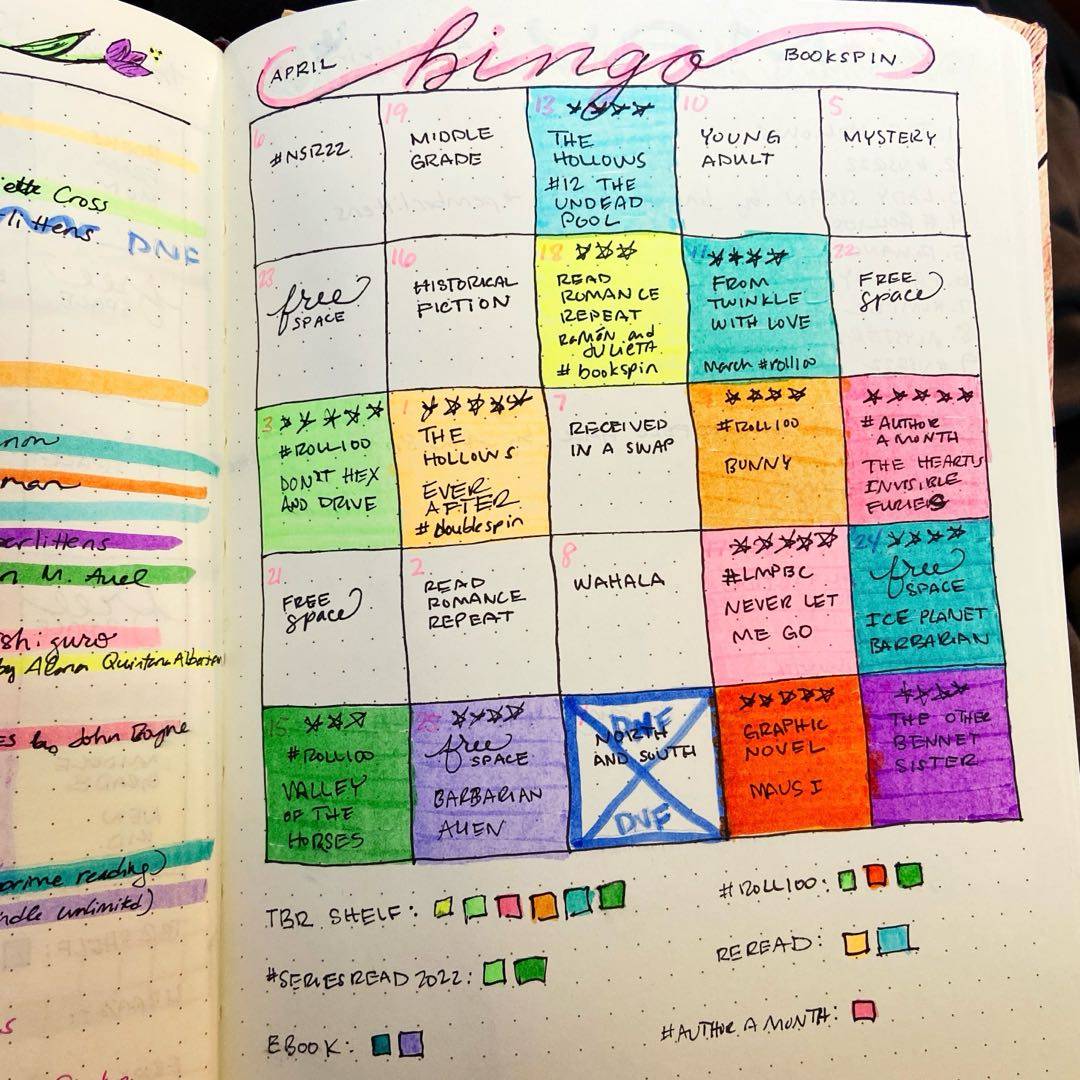 APRIL
bingo
BOOKSPIN
6
#NSR22
19
MIDDLE
GRADE
13
THE
HOLLOWS
#12 THE
UNDEAD
POOL
10
YOUNG
ADULT
5
MYSTERY
23
free
SPACE
16
HISTORICAL
FICTION
18
READ
ROMANCE
REPEAT
RAMÓN and
JULIETA
# bookspin
11
FROM
TWINKLE
WITH LOVE
March #roll100
22
FREE
space
3
#ROLL100
DON'T HEX
AND DRIVE
1
THE
HOLLOWS
EVER
AFTER
# Doublespin
7
RECEIVED
IN A SWAP
#ROLL100
BUNNY
# AUTHOR
A MONTH
THE HEART'S
INVISIBLE
FURIES
21
FREE
space
2
READ
ROMANCE
REPEAT
8
WAHALA
17
#LMPBC
NEVER LET
ME GO
24
free
SPACE
ICE PLANET
BARBARIAN
15
#ROLL100
VALLEY
OF THE
HORSES
25
free
SPACE
BARBARIAN
ALIEN
DNF
NORTH
AND SOUTH
DNF
GRAPHIC
NOVEL
MAUS I
THE OTHER
BENNET
SISTER
TBR SHELF:
#ROLL100:
REREAD:
#SERIESREAD 2022:
#AUTHOR A MONTH:
EBOOK:
Cross
littens DNF
non
man
erlittens
n M. Auel
shiguro
by Alana Quintana Albertson
ES by John Boyne
prime reading)
ndle unlimitd)